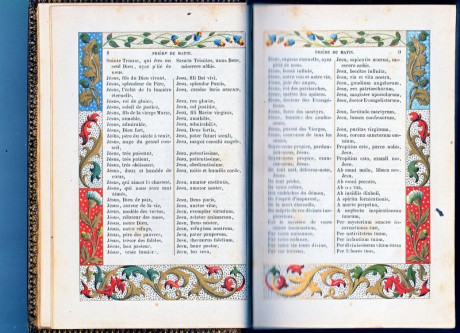 8 PRIÈRE DU MATIN.
Sainte Trinité, qui êtes un seul Dieu, ayez pitié de nous.
Jésus, fils du Dieu vivant,
Jésus, splendeur du Père,
Jésus, l'éclat de la lumière éternelle,
Jésus, roi de gloire,
Jésus, soleil de justice,
Jésus, fils de la vierge Marie,
Jésus, aimable,
Jésus, admirable,
Jésus, Dieu fort,
Jésus, père du siècle à venir,
Jésus, ange du grand conseil,
Jésus, très puissant,
Jésus, très patient,
Jésus, très obéissant,
Jésus, doux et humble de cœur,
Jésus, qui aimez la chasteté,
Jésus, qui nous avez tant aimés,
Jésus, Dieu de paix,
Jésus, auteur de la vie,
Jésus, modèle des vertus,
Jésus, zélateur des âmes,
Jésus, notre Dieu,
Jésus, notre refuge,
Jésus, père des pauvres,
Jésus, trésor des fidèles,
Jésus, bon pasteur,
Jésus, vraie lumière,
Sancta Trinitas, unus Deus, miserere nobis.
Jesu, fili Dei vivi,
Jesu, splendor Patris,
Jesu, candor lucis æternæ,
Jesu, rex gloriæ,
Jesu, sol justitiæ,
Jesu, fili Mariæ virginis,
Jesu, amabilis,
Jesu, admirabilis,
Jesu, Deus fortis,
Jesu, pater futuri seculi,
Jesu, magni consilii angele,
Jesu, potentissime,
Jesu, patientissime,
Jesu, obedientissime,
Jesu, mitis et humilis corde,
Jesu, amator castitatis,
Jesu, amator noster,
Jesu, Deus pacis,
Jesu, auctor vitæ,
Jesu, exemplar virtutum,
Jesu, zelator animarum,
Jesu, Deus noster,
Jesu, refugium nostrum,
Jesu, pater pauperum,
Jesu, thesaurus fidelium,
Jesu, bone pastor,
Jesu, lux vera,
PRIÈRE DU MATIN. 9
Jésus, sagesse éternelle,
Jésus, bonté infinie,
Jésus, notre voie et notre vie,
Jésus, joie des anges,
Jésus, roi des patriarches,
Jésus, maître des apôtres,
Jésus, docteur des Évangélistes,
Jésus, force des martyrs,
Jésus, lumière des confesseurs,
Jésus, pureté des Vierges,
Jésus, couronne de tous les saints,
Soyez-nous propice, pardonnez-nous, Jésus.
Soyez-nous propice, exaucez-nous, Jésus.
De tout mal, délivrez-nous, Jésus.
De tout péché,
De votre colère,
Des embûches du démon,
De l'esprit d'impureté,
De la mort éternelle,
Du mépris de vos divines inspirations,
Par le mystère de votre sainte incarnation,
Par votre naissance,
Par votre enfance,
Par votre vie toute divine,
Par vos travaux,
Jesu, sapientia æterna, miserere nobis.
Jesu, bonitas infinita,
Jesu, via et vita nostra,
Jesu, gaudium angelorum,
Jesu, rex patriarcharum,
Jesu, magister apostolorum,
Jesu, doctor Evangelistarum,
Jesu, fortitudo martyrum,
Jesu, lumen confessorum,
Jesu, puritas virginum,
Jesu, corona sanctorum omnium,
Propitius esto, parce nobis, Jesu.
Propitius esto, exaudi nos, Jesu.
Ab omni malo, libera nos, Jesu.
Ab omni peccato,
Ab ira tua,
Ab insidiis diaboli,
A spiritu fornicationis,
A morte perpetua,
A neglectu inspirationum tuarum,
Per mysterium sanctæ incarnationis tuæ,
Per nativitatem tuam,
Per infantiam tuam,
Per divinissimam vitam tuam
Per labores tuos,